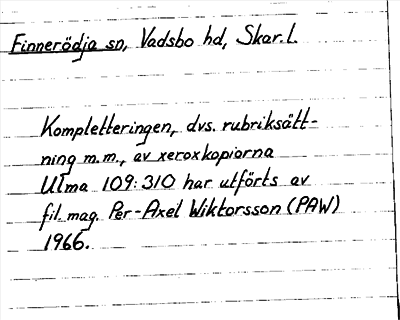 Finnerödja sn, Vadsbo hd, Skar. l.
Kompletteringen, dvs. rubriksätt-
ning m.m., av xeroxkopiorna
Ulma 109:310 har utförts av
fil. mag. Per-Axel Wiktorsson (PAW)
1966.